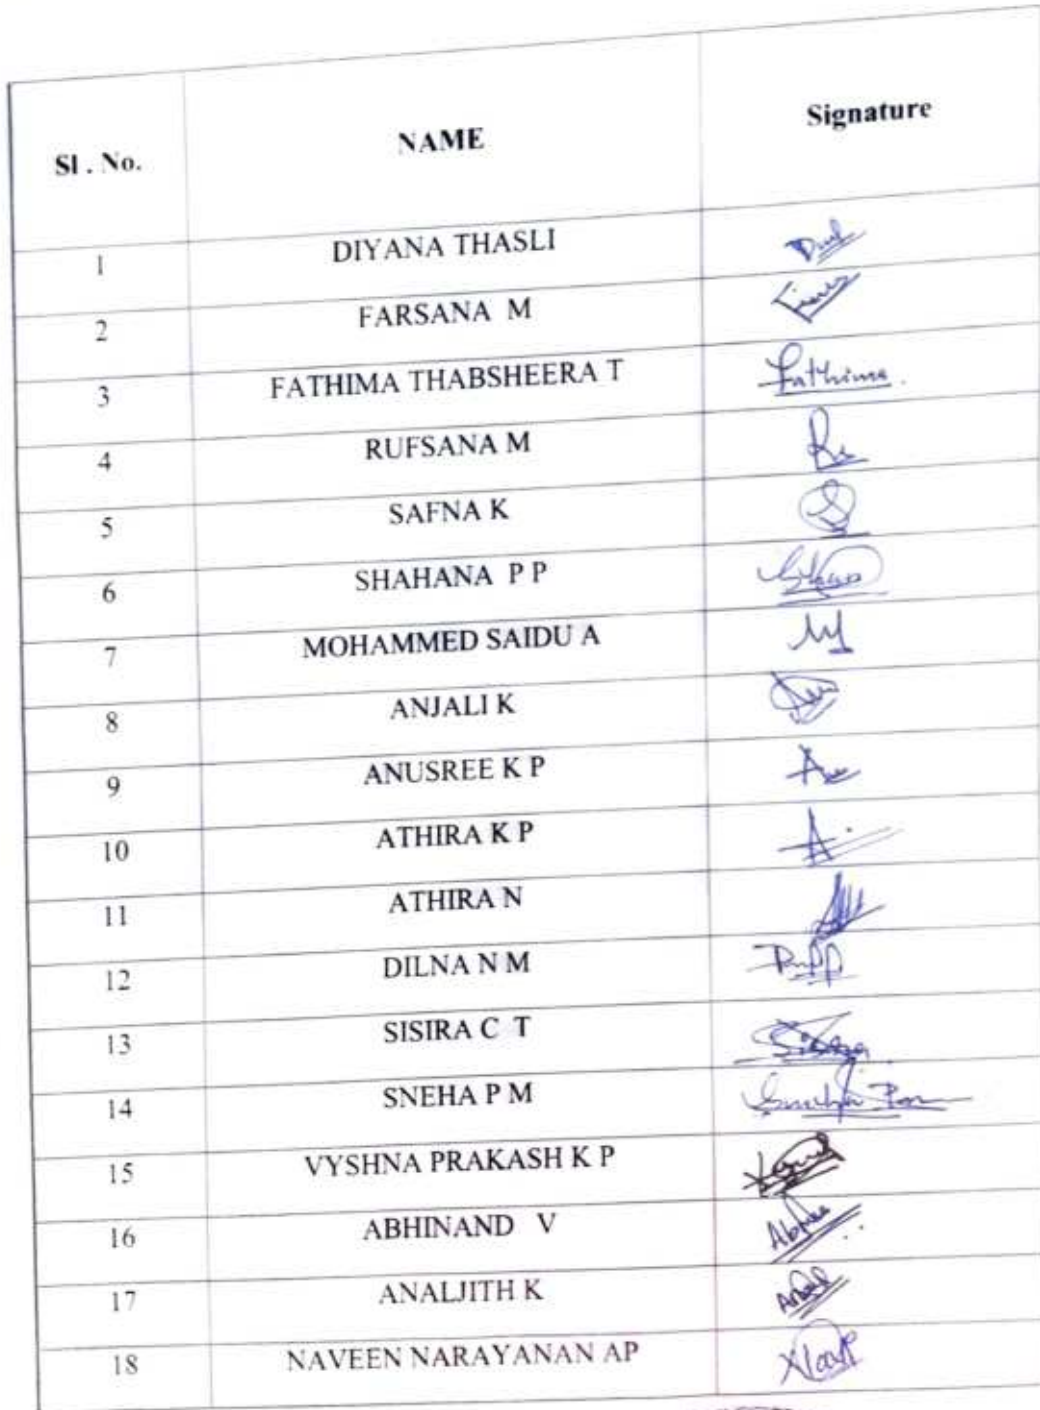 Sl . No. NAME Signature
1 DIYANA THASLI
2 FARSANA M
3 FATHIMA THABSHEERA T Fathima
4 RUFSANA M
5 SAFNA K
6 SHAHANA P P
7 MOHAMMED SAIDU A
8 ANJALI K
9 ANUSREE K P
10 ATHIRA K P
11 ATHIRA N
12 DILNA N M
13 SISIRA C T
14 SNEHA P M
15 VYSHNA PRAKASH K P
16 ABHINAND V
17 ANALJITH K
18 NAVEEN NARAYANAN AP